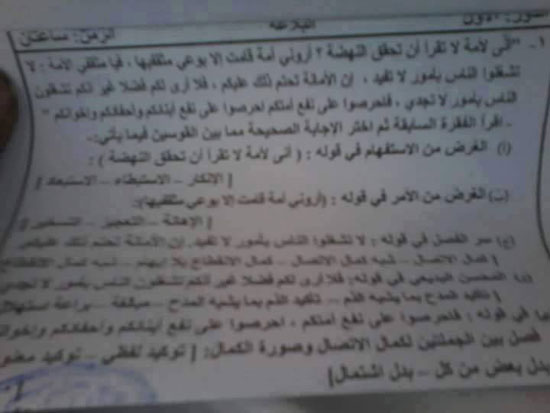 الدور: الأول البلاغة الزمن: ساعتان
١- "أنى لأمة لا تقرأ أن تحقق النهضة ؟ أروني أمة قامت إلا بوعي مثقفيها ، فيا مثقفي الأمة : لا
تشغلوا الناس بأمور لا تفيد ، إن الأمانة تحتم ذلك عليكم ، فلا أرى لكم فضلا غير أنكم تشغلون
الناس بأمور لا تجدي ، فاحرصوا على نفع أمتكم احرصوا على نفع أبنائكم وأحفادكم وإخوانكم "
- اقرأ الفقرة السابقة ثم اختر الإجابة الصحيحة مما بين القوسين فيما يأتي:-
(أ) الغرض من الاستفهام في قوله : ( أنى لأمة لا تقرأ أن تحقق النهضة ) :
[ الإنكار – الاستبطاء – الاستبعاد ]
(ب) الغرض من الأمر في قوله : (أروني أمة قامت إلا بوعي مثقفيها):
[ الإهانة – التعجيز – التسخير ]
(ج) سر الفصل في قوله : لا تشغلوا الناس بأمور لا تفيد. إن الأمانة تحتم ذلك عليكم.
[ كمال الاتصال – شبه كمال الاتصال – كمال الانقطاع بلا إيهام – شبه كمال الانقطاع
(د) المحسن البديعي في قوله: فلا أرى لكم فضلا غير أنكم تشغلون الناس بأمور لا تجدي
[ تأكيد المدح بما يشبه الذم – تأكيد الذم بما يشبه المدح – مبالغة – براعة استهلال
في قوله : فاحرصوا على نفع أمتكم ، احرصوا على نفع أبنائكم وأحفادكم وإخوانكم
فصل بين الجملتين لكمال الاتصال وصورة الكمال: [ توكيد لفظي – توكيد معنو
بدل بعض من كل – بدل اشتمال]